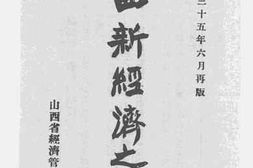 三十五年六月再版
西新經濟之
山西省經濟管